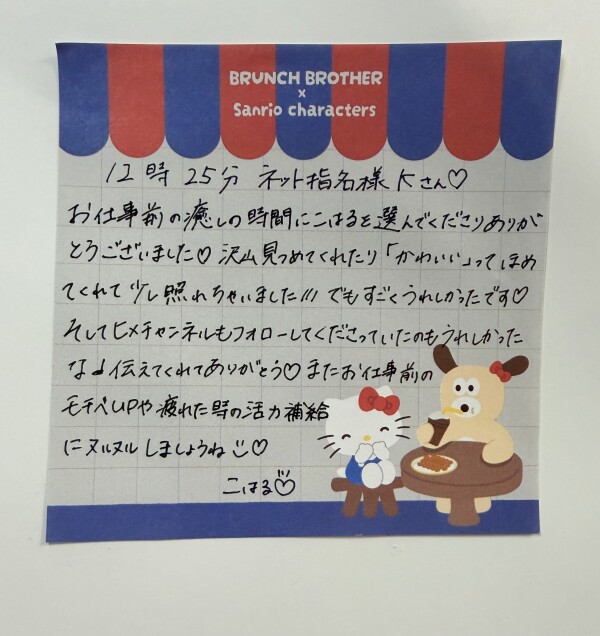 BRUNCH BROTHER
×
Sanrio characters
12時25分 ネット指名様 Kさん♡
お仕事前の癒しの時間にこはるを選んでくださりありが
とうございました♡ 沢山見つめてくれたり「かわいい」ってほめ
てくれて少し照れちゃいました/// でもすごくうれしかったです♡
そしてヒメチャンネルもフォローしてくださっていたのもうれしかった
な♩伝えてくれてありがとう♡ またお仕事前の
モチベUPや疲れた時の活力補給
にヌルヌルしましょうね♡
こはる♡